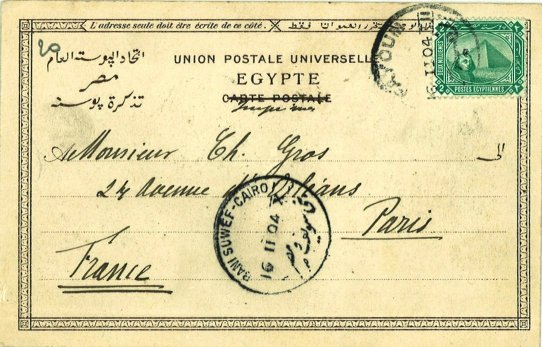 L'adresse seule doit être écrite de ce côté. لا يكتب في هذا الجهة غير العنوان فقط
20
اتحاد البوسته العام
مصر
تذكرة بوسته
UNION POSTALE UNIVERSELLE
EGYPTE
CARTE POSTALE
16 II 04
2
2
POSTES EGYPTIENNES
الى
Monsieur Ch. Gros
24 Avenue d'Orléans
Paris
France
BANI SUWEF-CAIRO
16 II 04 X